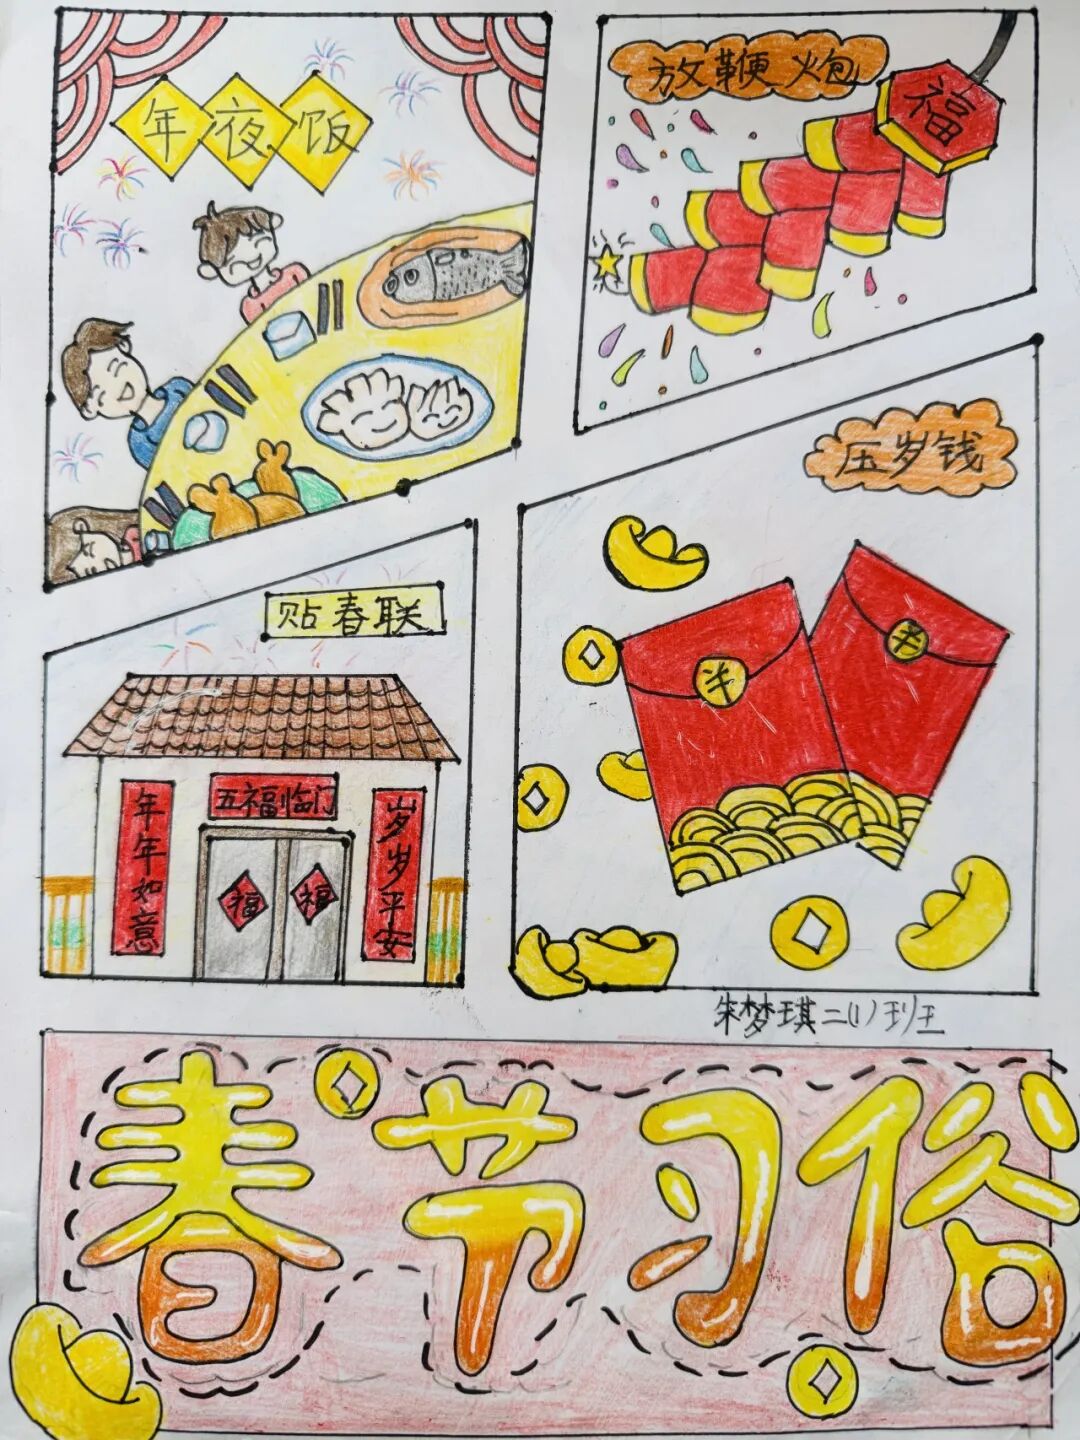 年夜饭
放鞭炮
福
压岁钱
贴春联
五福临门
年年如意
福
福
岁岁平安
朱梦琪二(1)班
春节习俗